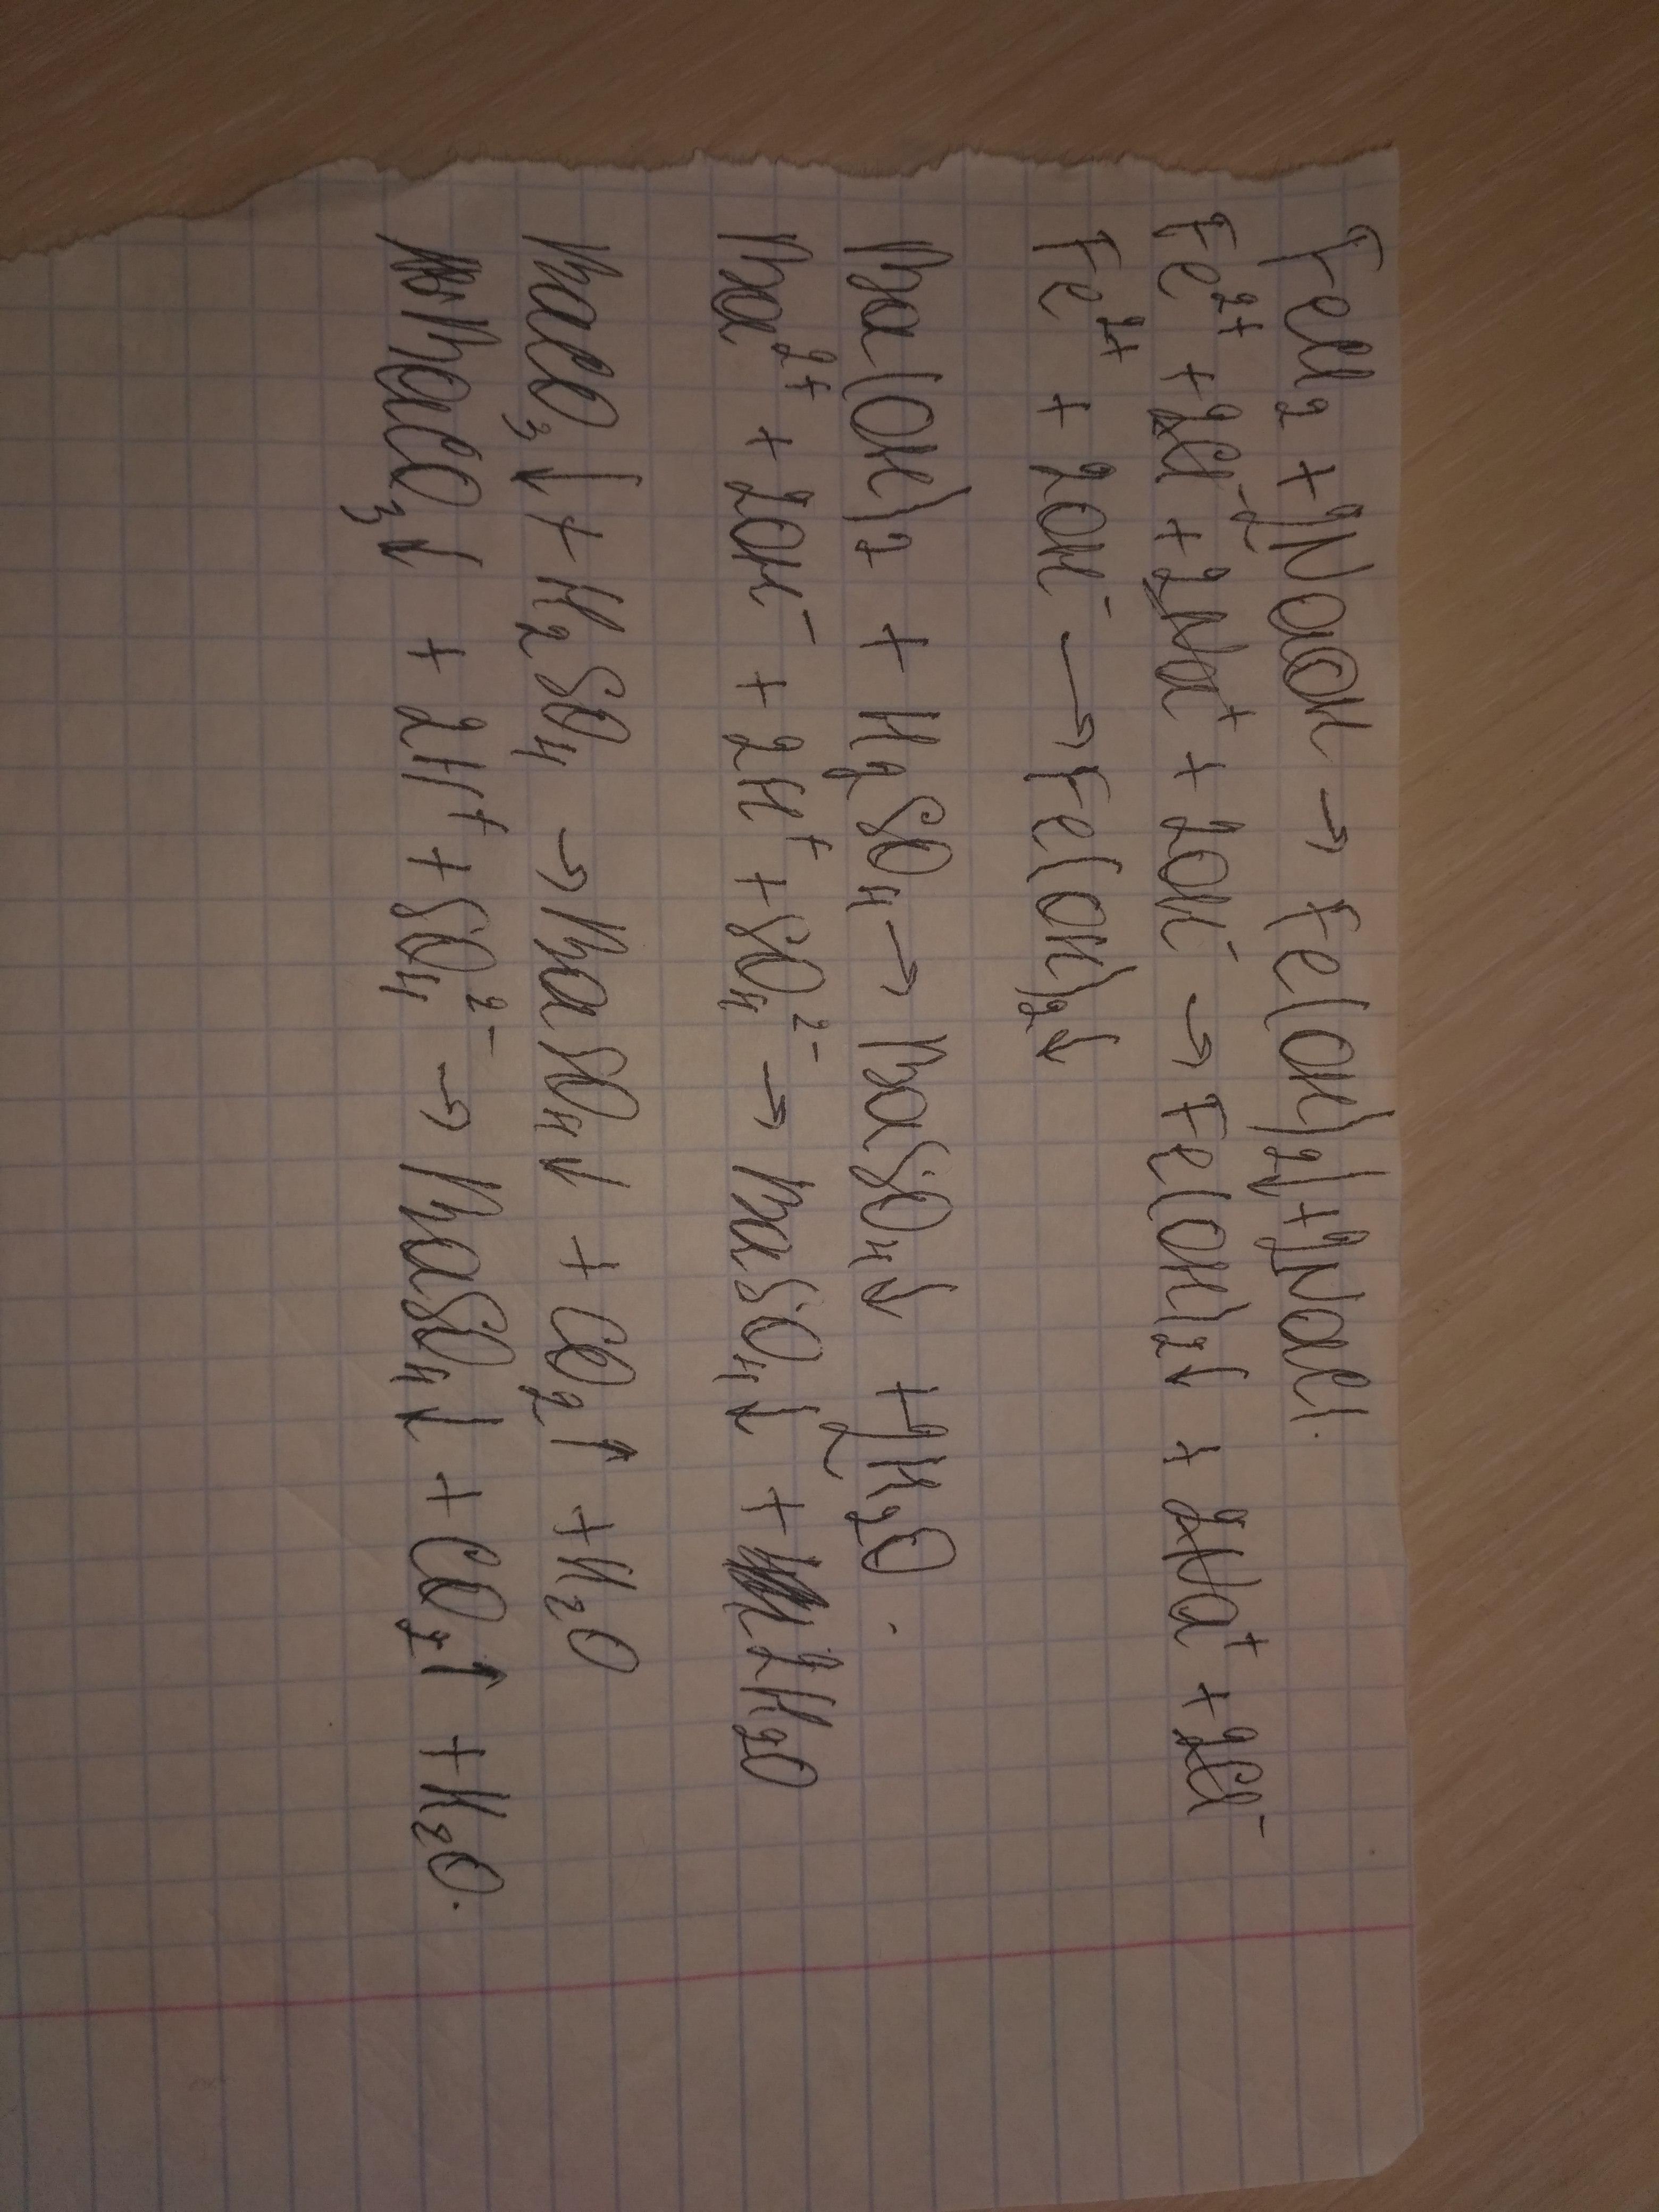 FeCl₂ + 2NaOH → Fe(OH)₂↓ + 2NaCl.
Fe²⁺ + 2Cl⁻ + 2Na⁺ + 2OH⁻ → Fe(OH)₂↓ + 2Na⁺ + 2Cl⁻
Fe²⁺ + 2OH⁻ → Fe(OH)₂↓
Ba(OH)₂ + H₂SO₄ → BaSO₄↓ + 2H₂O.
Ba²⁺ + 2OH⁻ + 2H⁺ + SO₄²⁻ → BaSO₄↓ + 2H₂O
BaCO₃↓ + H₂SO₄ → BaSO₄↓ + CO₂↑ + H₂O
BaCO₃↓ + 2H⁺ + SO₄²⁻ → BaSO₄↓ + CO₂↑ + H₂O.